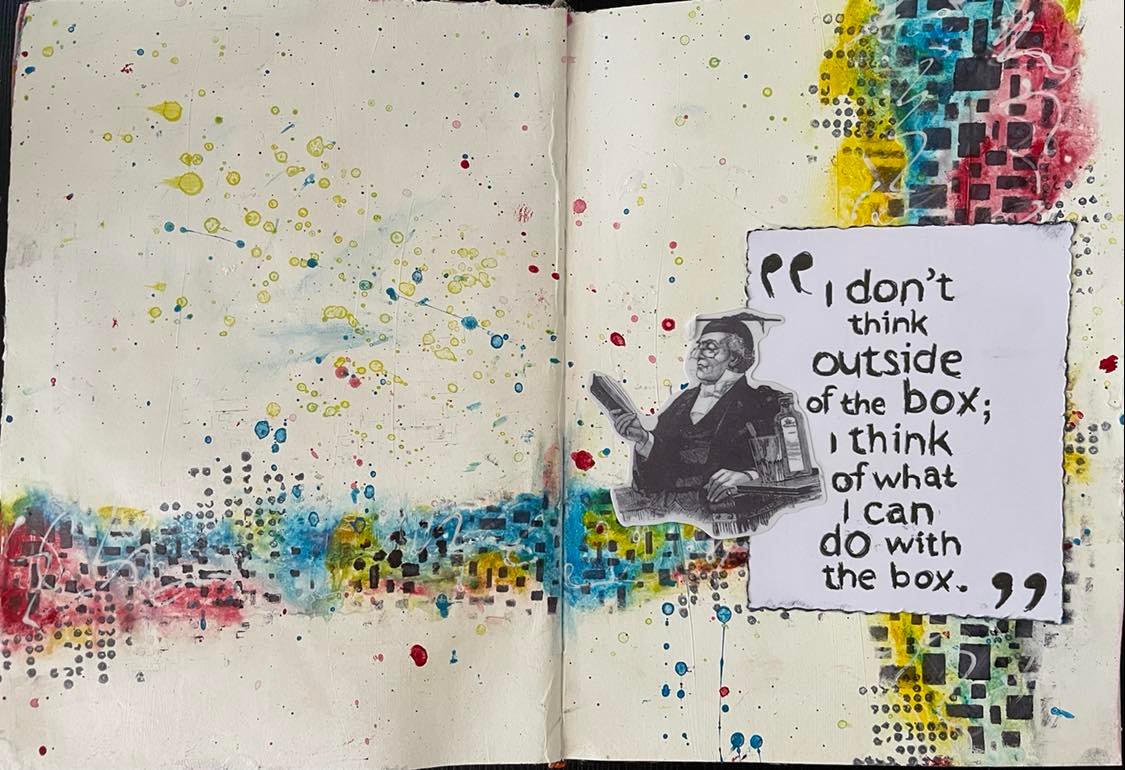 “I don't
think
outside
of the box;
I think
of what
I can
do with
the box.”